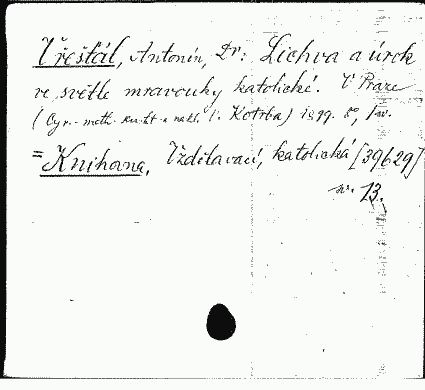 Vřešťál, Antonín, Dr: Lichva a úrok
ve světle mravouky katolické. V Praze
(Cyr.-meth. kniht. a nakl. V. Kotrba) 1899. 8°, 1 sv.
= Knihovna, Vzdělavací, katolická [39629]
nr. 13.